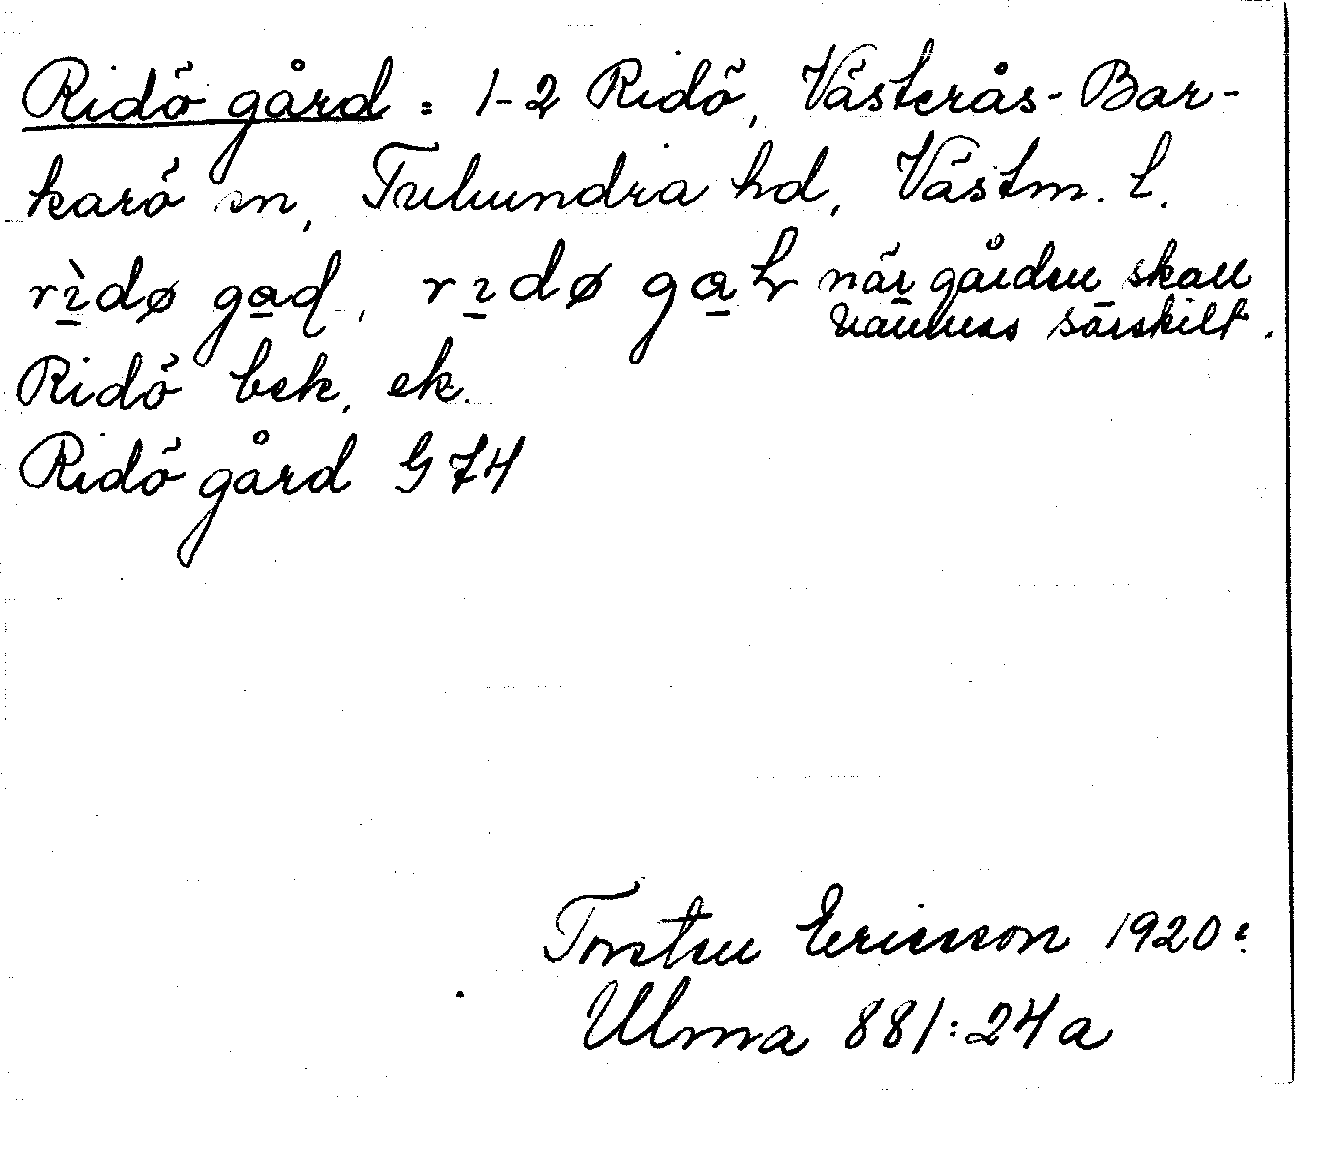 Ridö gård : 1-2 Ridö, Västerås-Bar-
karö sn, Tuhundra hd, Västm. l.
rìdø gaɖ, rıdø gaɽ när gården skall
nämnas särskilt.
Ridö bek. ek.
Ridö gård G 74
Torsten Ericsson 1920:
Ulma 881:24a